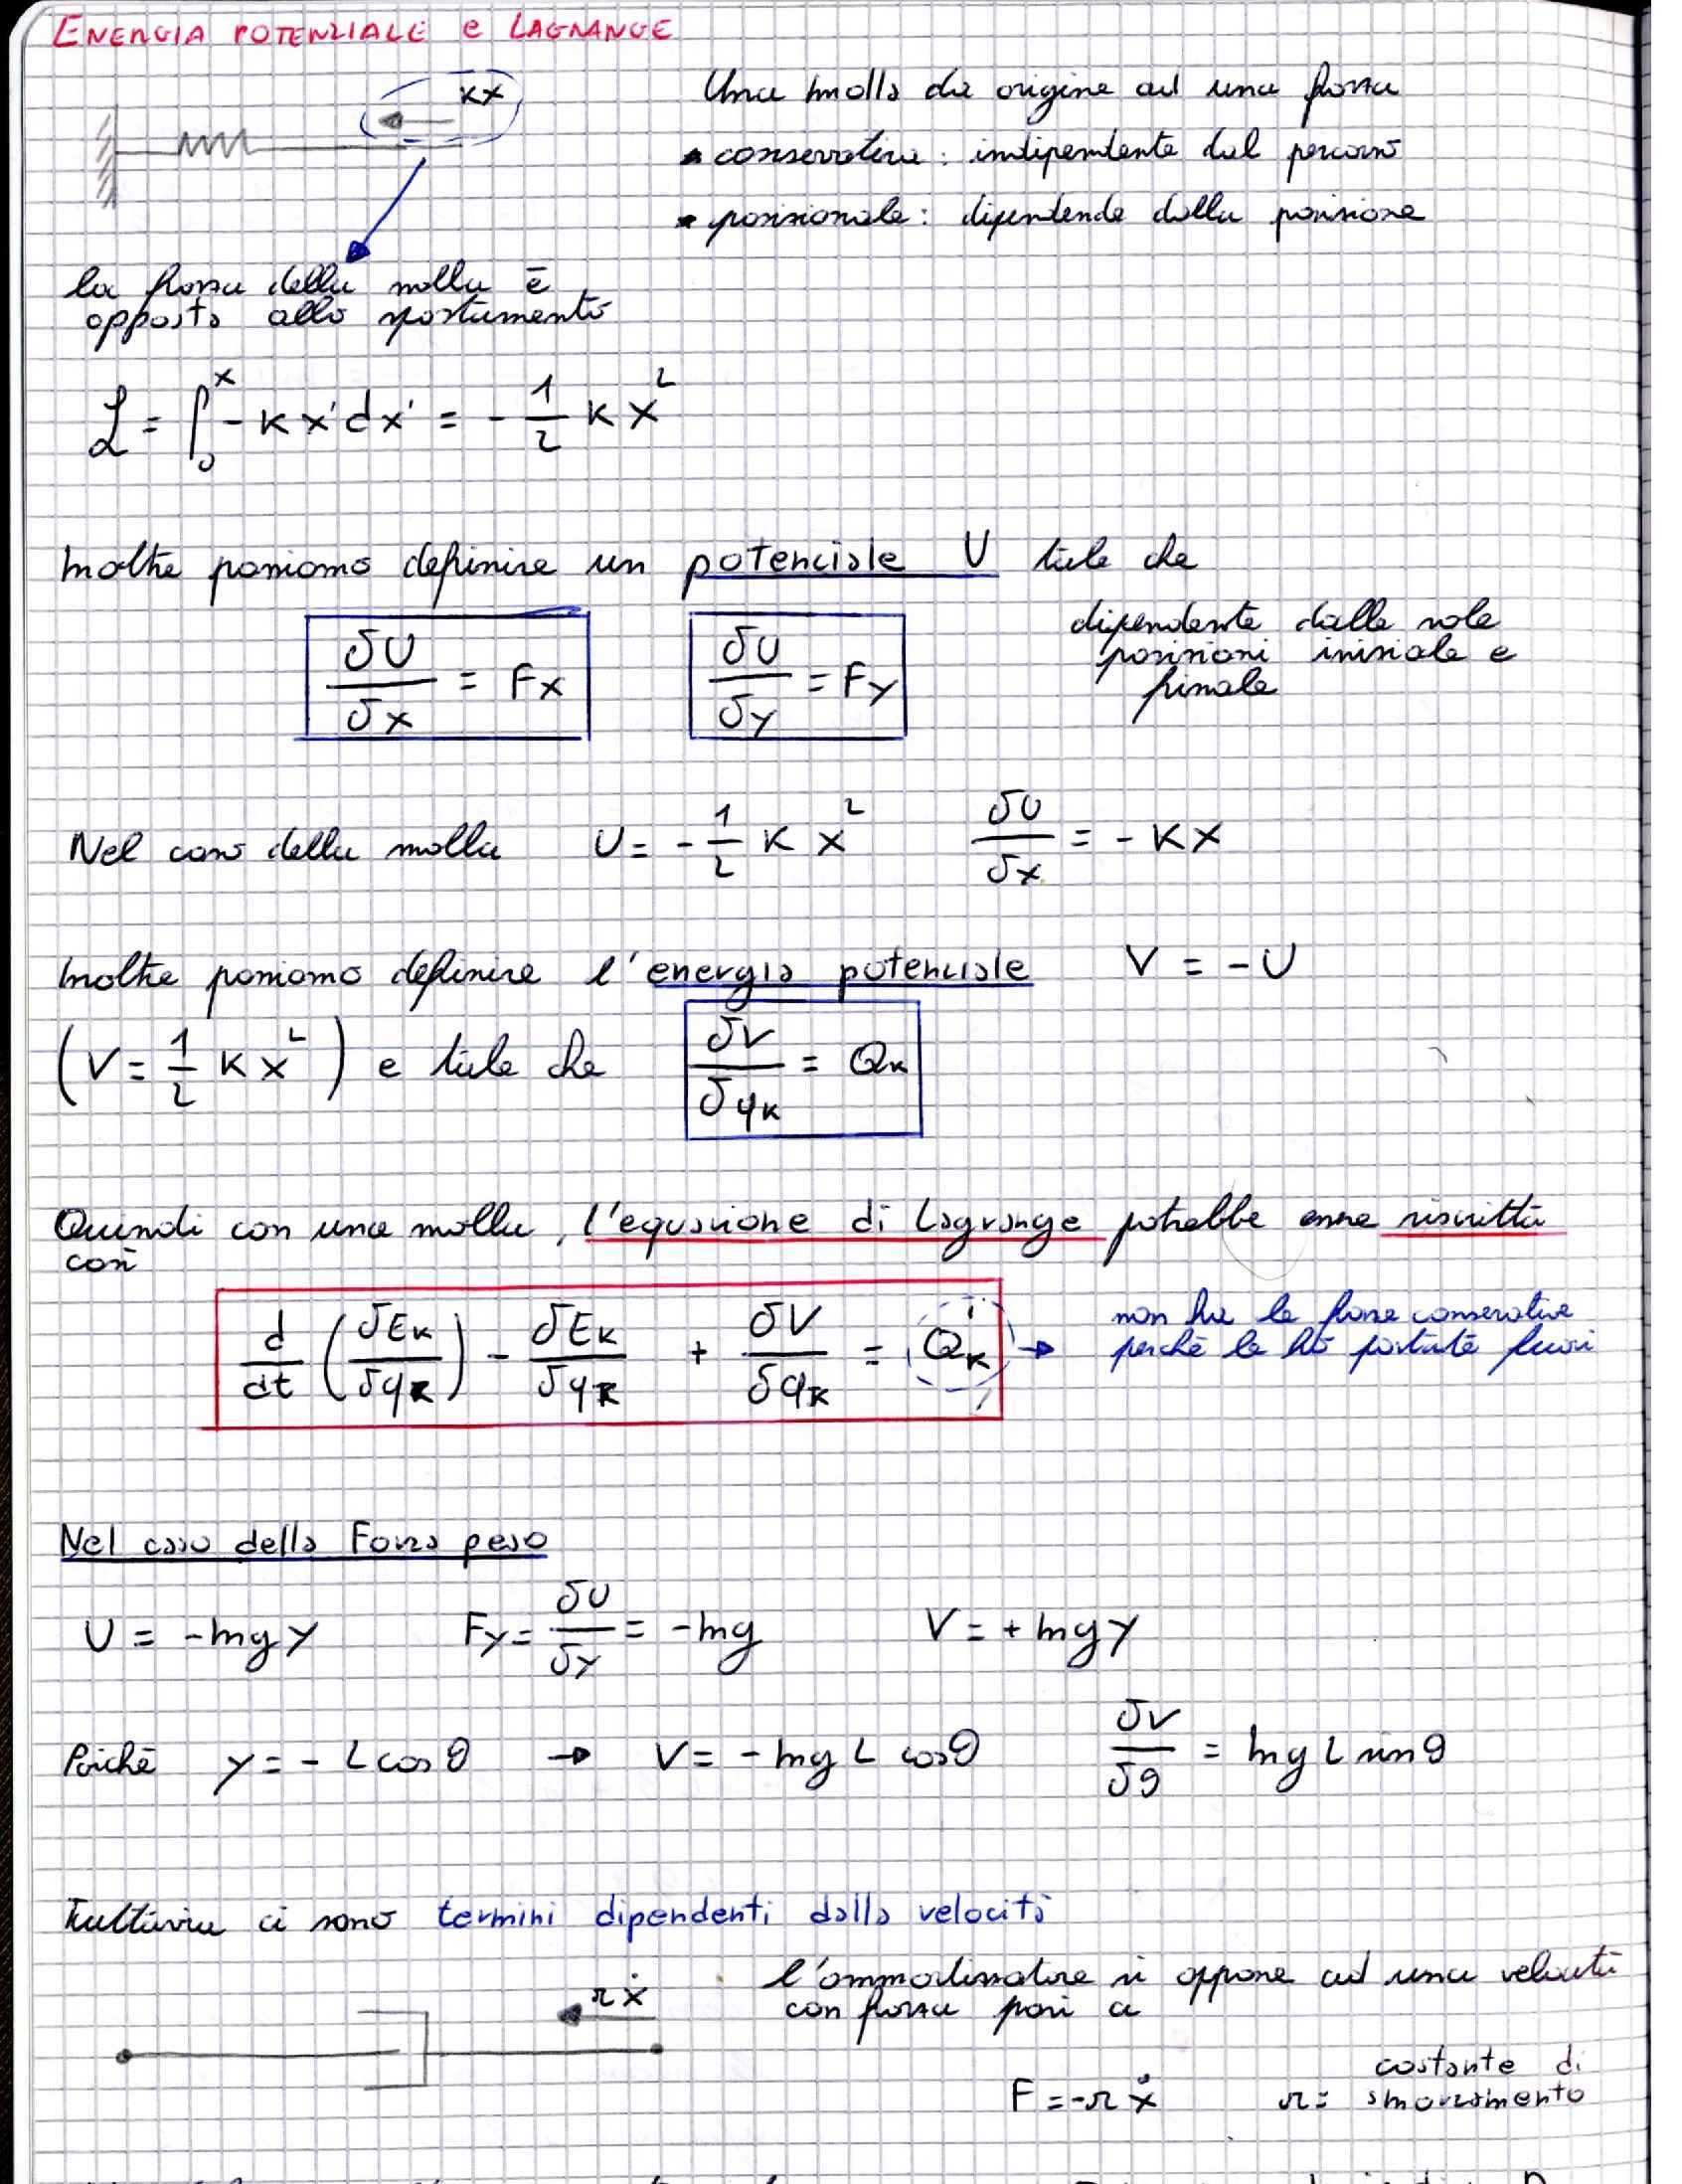 ENERGIA POTENZIALE e LAGRANGE
kx
Una molla da origine ad una forza
• conservativa: indipendente dal percorso
• posizionale: dipendende dalla posizione
la forza della molla è
opposta allo spostamento
L = ∫₀ˣ -kx'dx' = - 1/2 k x²
Inoltre possiamo definire un potenziale U tale che
δU/δx = Fx   δU/δy = Fy
dipendente dalle sole
posizioni iniziale e
finale
Nel caso della molla   U = - 1/2 k x²   δU/δx = - kx
Inoltre possiamo definire l'energia potenziale   V = -U
(V = 1/2 k x²) e tale che   δV/δqk = Qk
Quindi con una molla, l'equazione di Lagrange potrebbe essere riscritta
così
d/dt (δEk/δqk) - δEk/δqk + δV/δqk = Q'k →
non ha le forze conservative
perché le ho portate fuori
Nel caso della Forza peso
U = -mgy   Fy = δU/δy = -mg   V = +mgy
Poiché y = - L cosθ → V = - mg L cosθ   δV/δθ = mg L sinθ
Tuttavia ci sono termini dipendenti dalla velocità
rẋ
l'ammortizzatore si oppone ad una velocità
con forza pari a
F = -rẋ   r = costante di
smorzamento